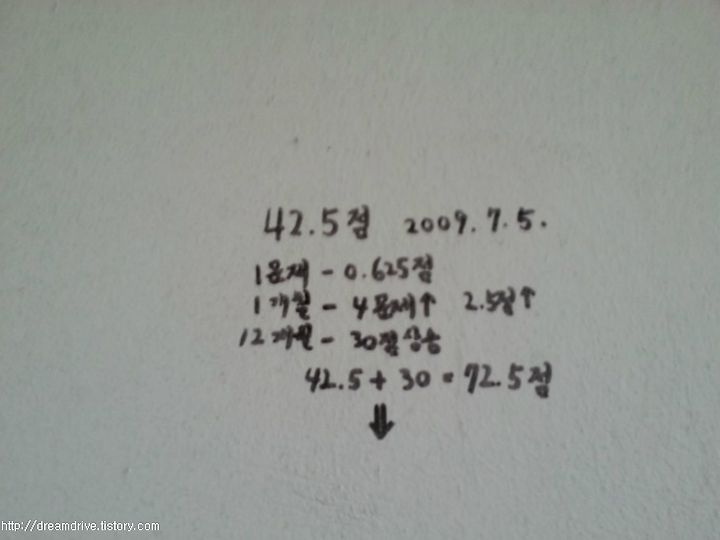 42.5점 2009. 7. 5.
1문제 - 0.625점
1개월 - 4문제↑ 2.5점↑
12개월 - 30점 상승
42.5 + 30 = 72.5점
⇓
http://dreamdrive.tistory.com